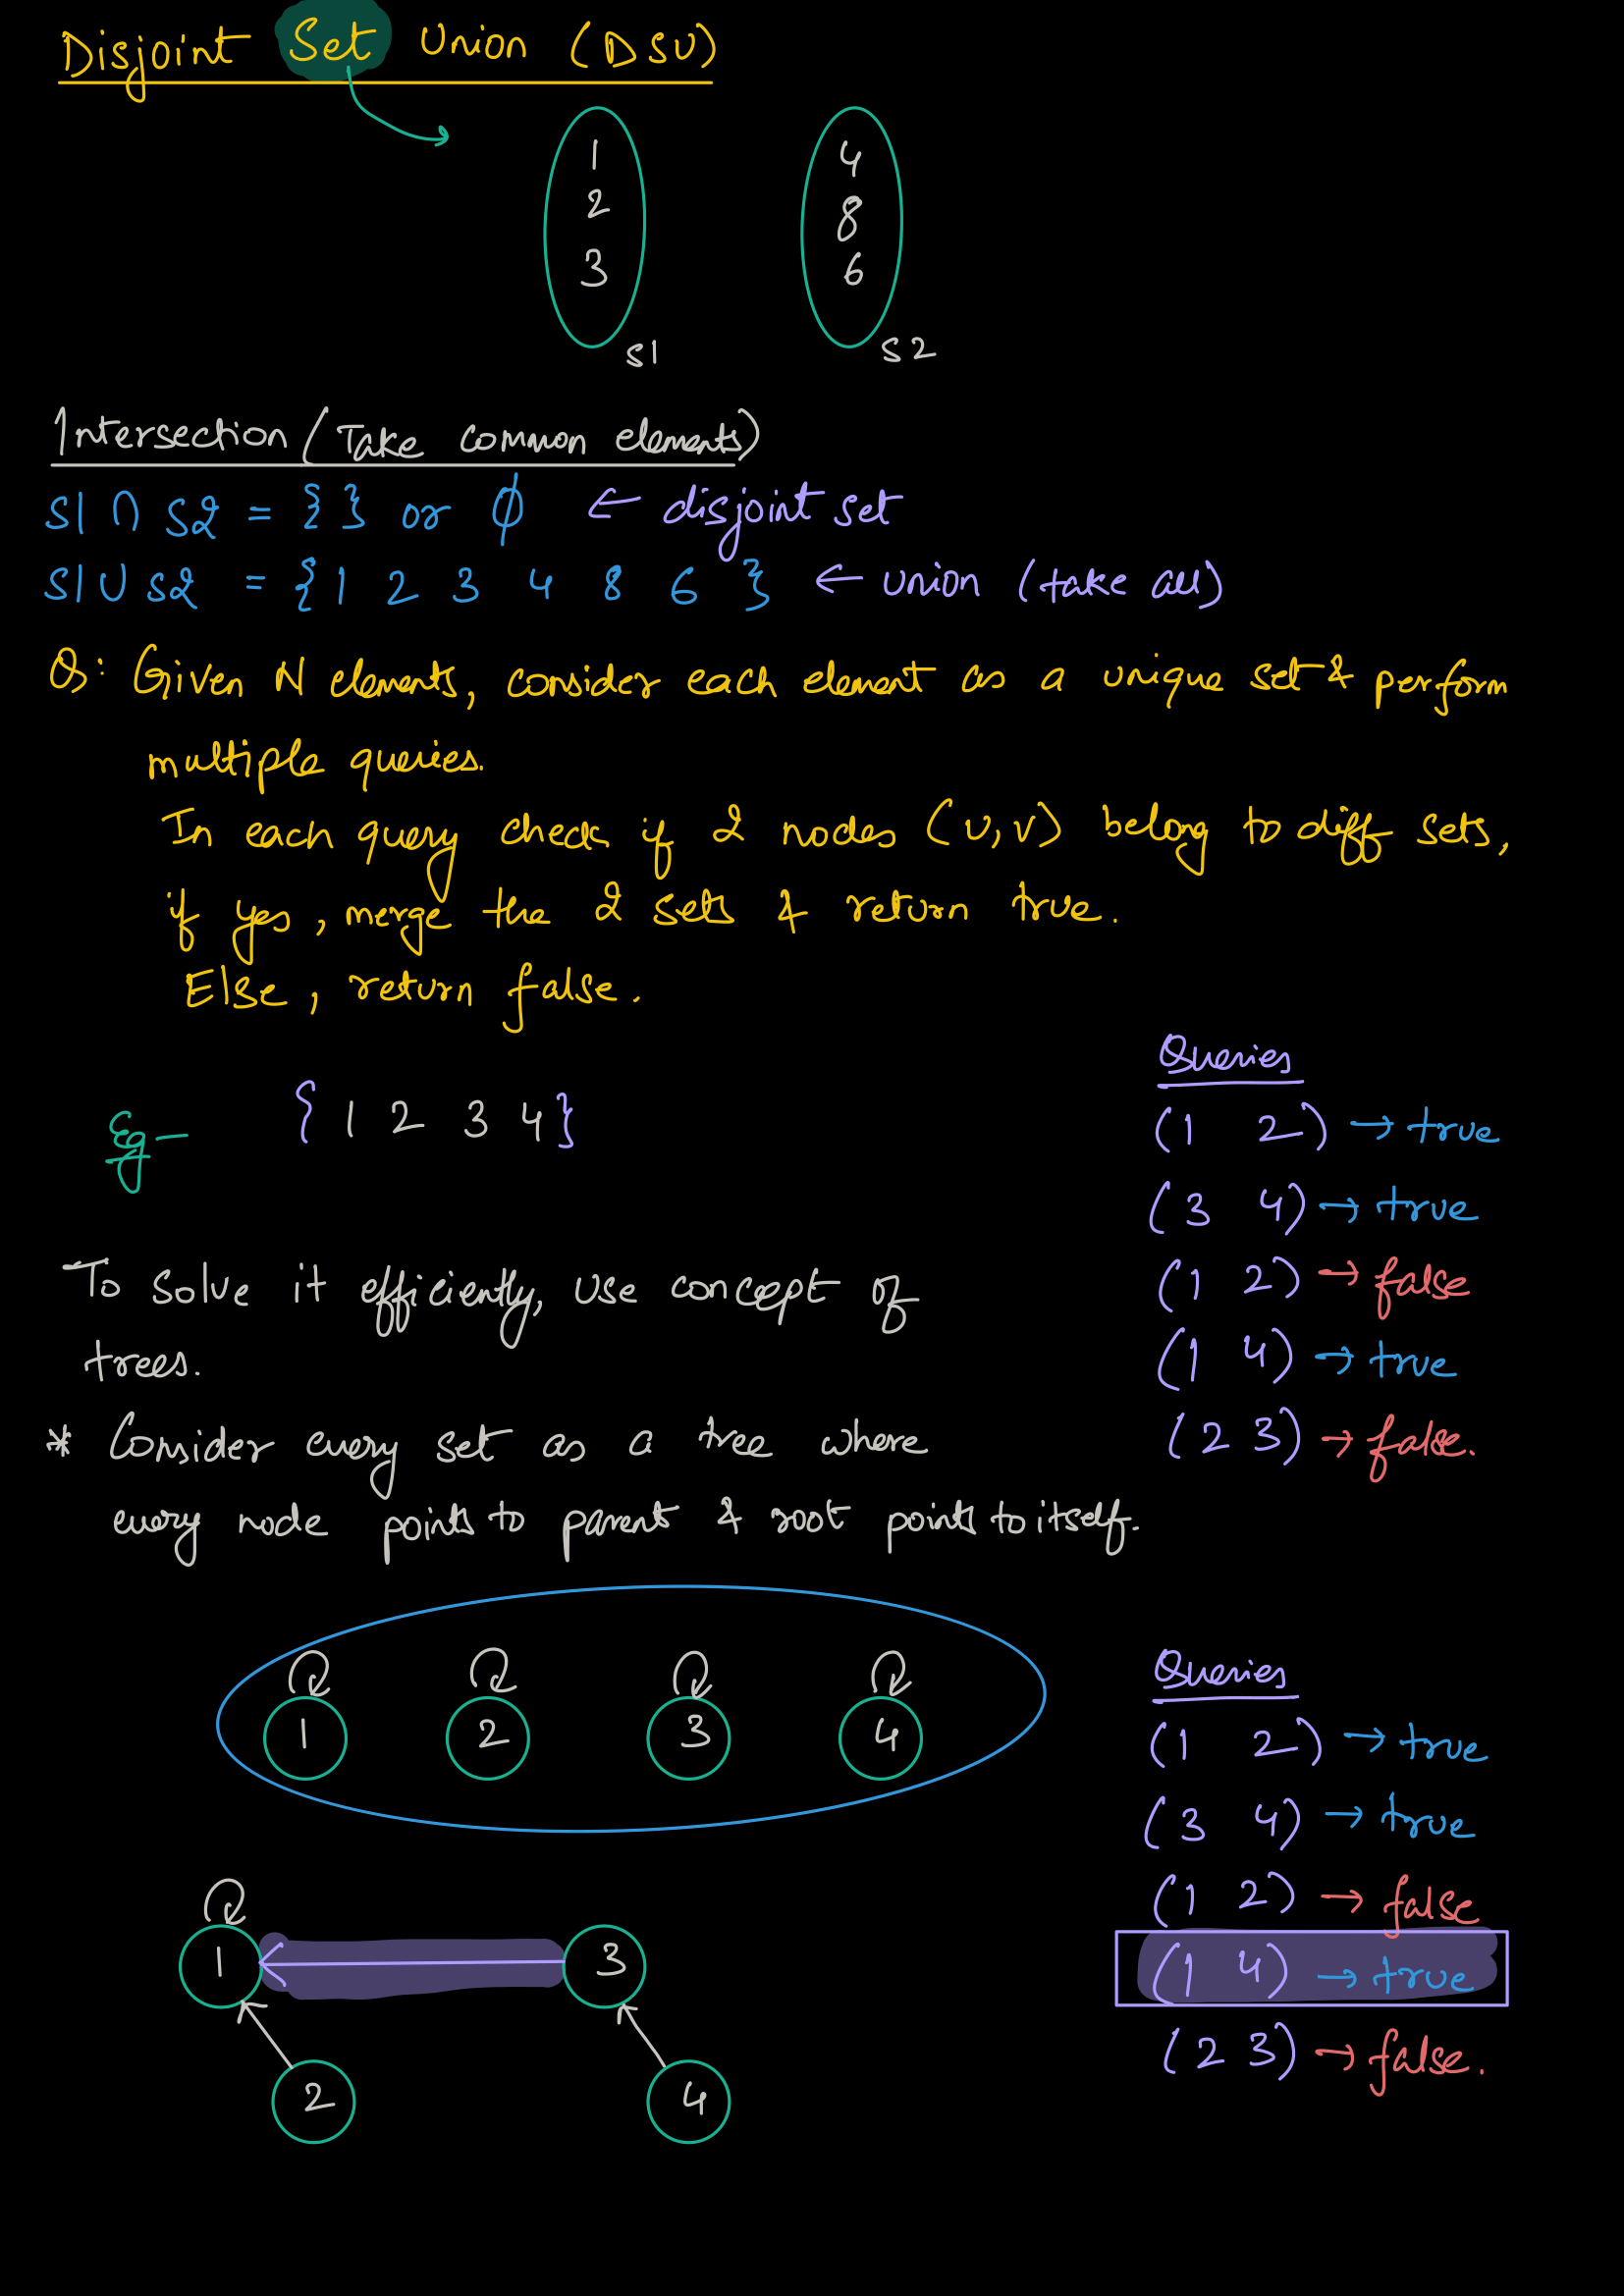 Disjoint Set Union (DSU)
1
2
3
S1
4
8
6
S2
Intersection (Take common elements)
S1 ∩ S2 = { } or ϕ ← disjoint set
S1 ∪ S2 = { 1 2 3 4 8 6 } ← union (take all)
Q: Given N elements, consider each element as a unique set & perform
multiple queries.
In each query check if 2 nodes (u,v) belong to diff sets,
if yes, merge the 2 sets & return true.
Else, return false.
Eg- { 1 2 3 4 }
Queries
(1 2) → true
(3 4) → true
(1 2) → false
(1 4) → true
(2 3) → false.
To solve it efficiently, use concept of
trees.
* Consider every set as a tree where
every node points to parent & root points to itself.
1 2 3 4
Queries
(1 2) → true
(3 4) → true
(1 2) → false
(1 4) → true
(2 3) → false.
1 3
2 4